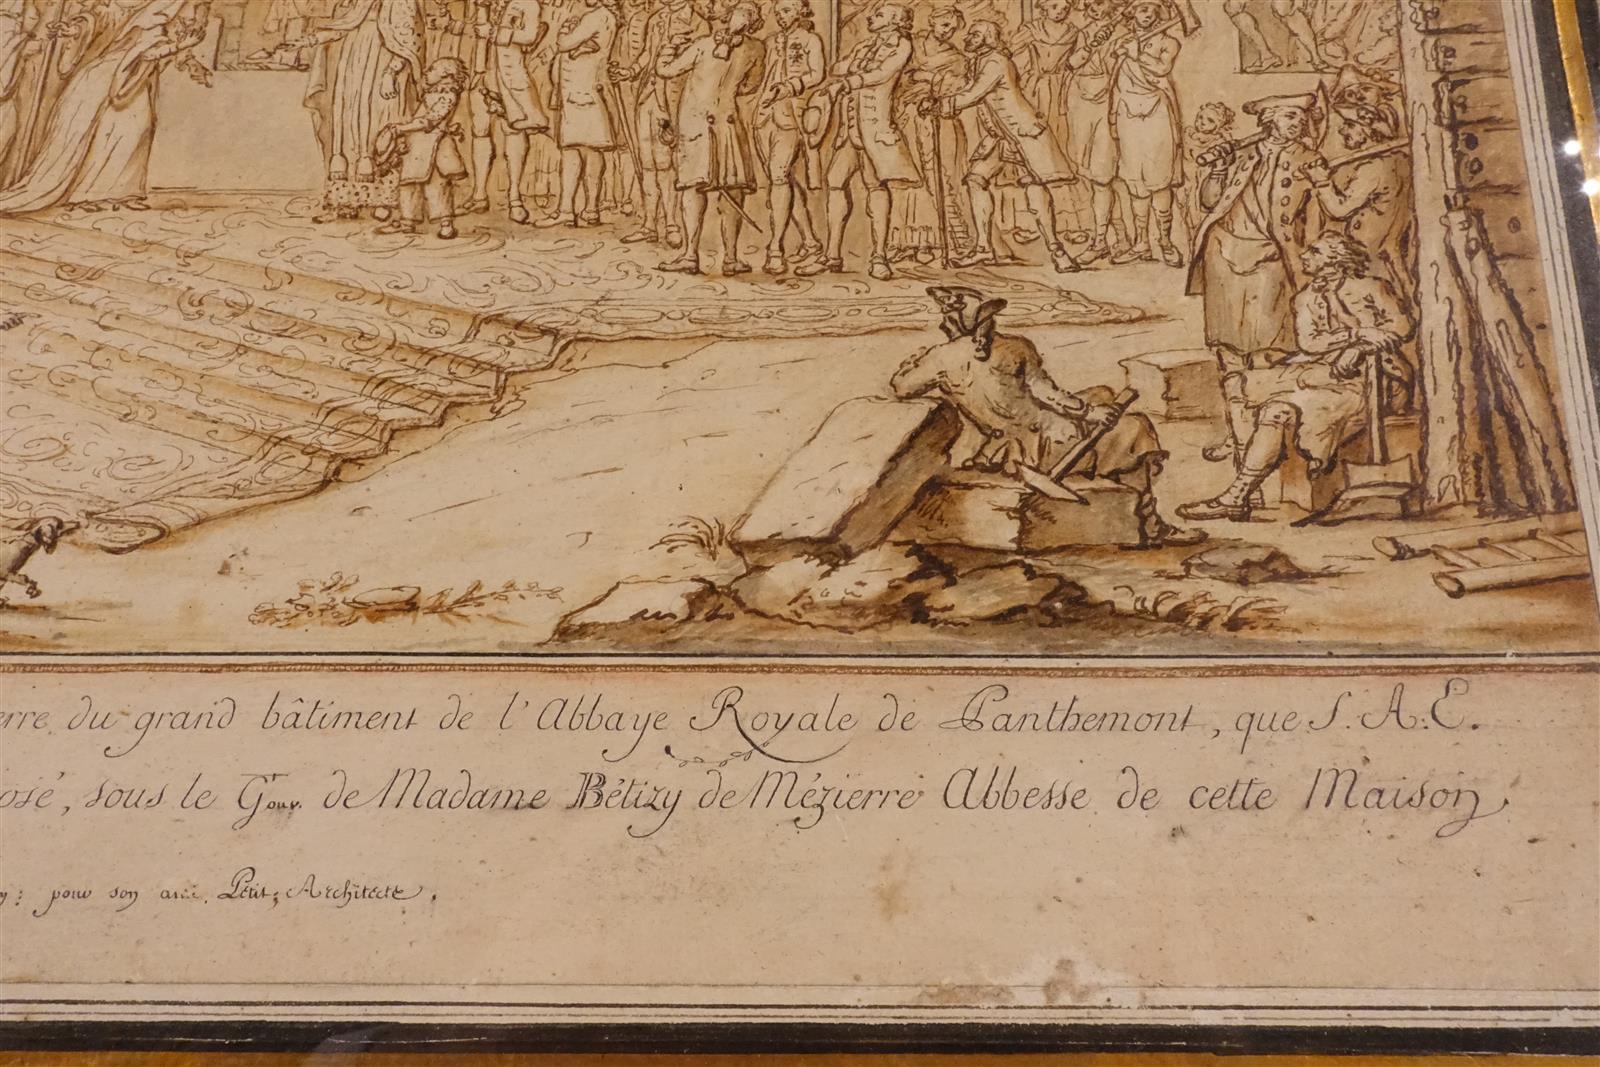 erre du grand bâtiment de l'Abbaye Royale de Panthemont, que S. A. E.
osé, sous le Gouv. de Madame Bétizy de Mézierre Abbesse de cette Maison.
pour son ami, Petit, Architecte.